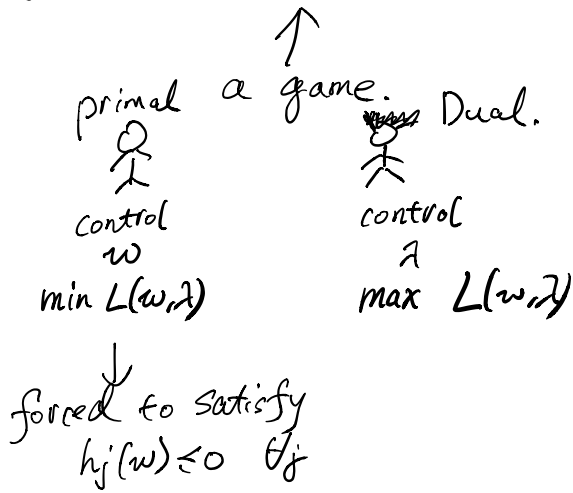 a game.
primal
Dual.
control
w
min L(w,λ)
control
λ
max L(w,λ)
forced to satisfy
hj(w) ≤ 0 ∀j